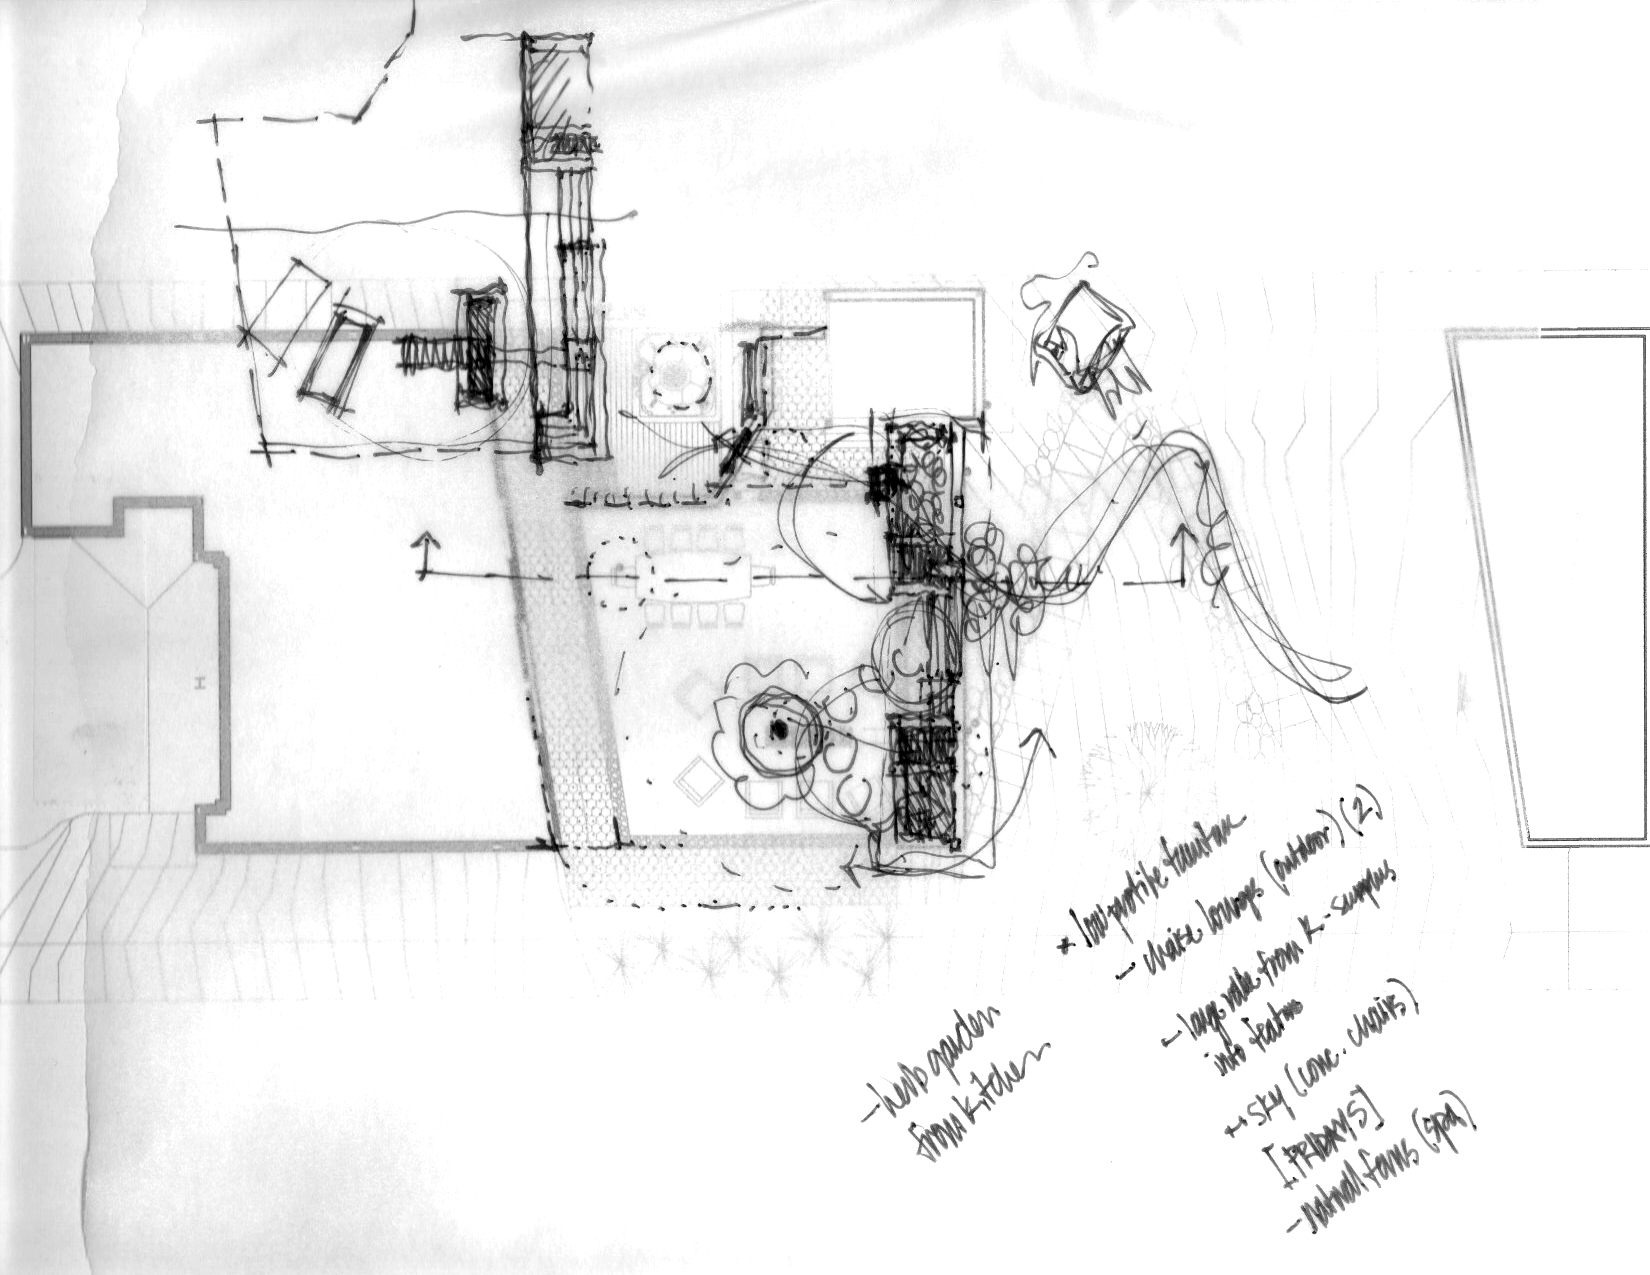 * low profile furniture
- chaise lounges (outdoor) (2)
- large table from K-
into
sky (conc. chairs)
[FRIDAYS]
- natural forms (spa)
- herb garden
from kitchen
H